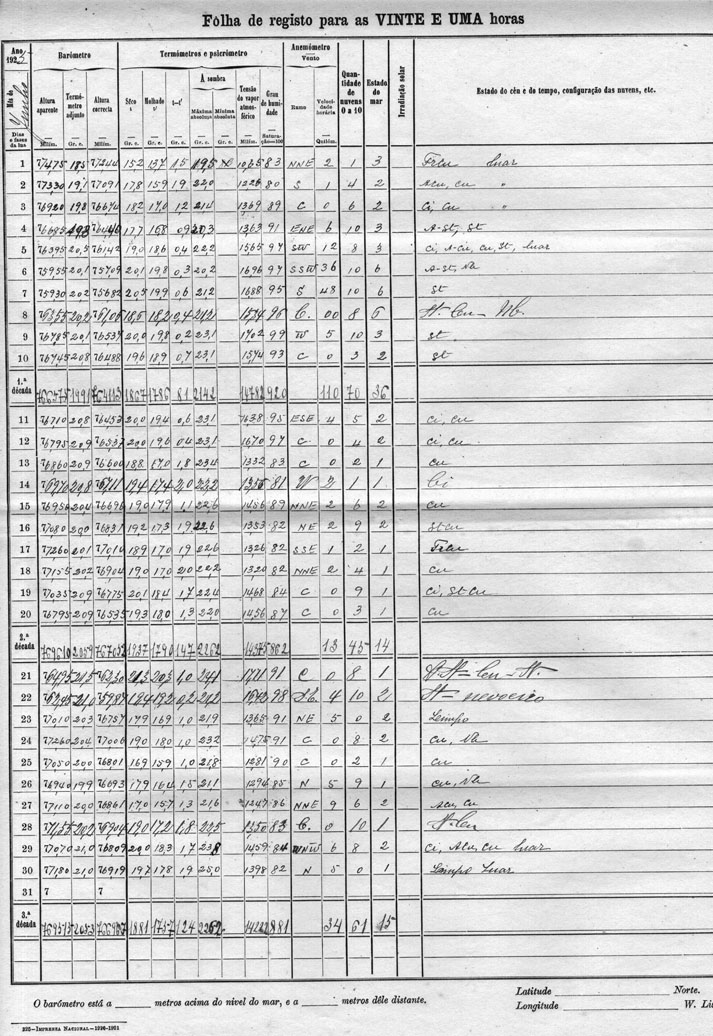 Fôlha de registo para as VINTE E UMA horas
Ano 192
Mês de Junho
Dias e fases da lua
Barómetro
Altura aparente Milím.
Termómetro adjunto Gr. c.
Altura correcta Milím.
Termómetros e psicrómetro
Sêco t Gr. c.
Molhado t' Gr. c.
t—t' Gr. c.
À sombra
Máxima absoluta Gr. c.
Mínima absoluta Gr. c.
Tensão do vapor atmosférico Milím.
Grau de humidade Saturação=100
Anemómetro
Vento
Rumo
Velocidade horária Quilóm.
Quantidade de nuvens 0 a 10
Estado do mar
Irradiação solar
Estado do céu e do tempo, configuração das nuvens, etc.
1 77475 185 77244 152 137 15 19,5 1065 83 NNE 2 1 3 Frcu luar
2 77330 19,1 77091 178 159 19 220 1226 80 S 1 4 2 Acu, cu "
3 76920 198 76674 182 170 12 214 1369 89 C 0 6 2 Ci, Cu "
4 76695 198 177 168 09 20,3 1363 91 ENE 6 10 3 A-St, St
5 76395 20,5 76142 190 186 0,4 222 1565 97 SW 12 8 3 Ci, A-Cu, Cu, St, luar
6 75955 20,1 75709 201 198 0,3 20,2 1696 97 SSW 36 10 6 A-St, Na
7 75930 202 75682 205 199 06 21,2 1688 95 S 48 10 6 St
8 202 185 182 0,4 1524 96 C. 00 8 6
9 76785 20,1 76537 20,0 198 0,2 23,1 1702 99 W 5 10 3 St.
10 76745 208 76488 196 189 0,7 23,1 1574 93 C 0 3 2 St
1.ª década 766475 1991 764113 1867 1786 81 2142 14782 920 110 70 36
11 76710 208 76453 200 194 0,6 231 1638 95 ESE 4 5 2 Ci, Cu
12 76795 209 76537 200 196 04 231 1670 97 C 0 4 2 Ci, Cu
13 76860 209 76600 188 170 1,8 234 1332 83 C 0 2 1 Cu
14 76970 20,8 194 174 2,0 232 1355 81 W 3 1 1 Ci
15 76950 204 76696 190 179 1,1 22,6 1456 89 NNE 2 6 2 Cu
16 77080 200 76831 192 173 19 22,6 1353 82 NE 2 9 2 Stcu
17 77260 201 77010 189 170 19 226 1326 82 SSE 1 2 1 Frcu
18 77155 202 76904 190 170 20 222 1320 82 NNE 2 4 1 Cu
19 77035 209 76775 201 184 1,7 224 1468 84 C 0 9 1 Ci, St Cu
20 76795 209 76535 193 180 1,3 220 1456 87 C 0 3 1 Cu
2.ª década 769610 2059 767032 1937 1790 147 2262 14575 862 13 45 14
21 76495 215 76230 213 203 1,0 241 1771 91 C 0 8 1
22 21,0 194 192 0,2 1643 98 4 10 2 St = nevoeiro
23 77010 203 76757 179 169 1,0 21,9 1365 91 NE 5 0 2 Limpo
24 77260 204 77006 190 180 1,0 232 1475 91 C 0 8 2 Cu, Na
25 77050 200 76801 169 159 1,0 21,8 1281 90 C 0 2 1 Cu
26 76940 199 76693 179 164 1,5 211 1294 85 N 5 9 1 Cu, Na
27 77110 200 76861 170 157 1,3 21,6 1247 86 NNE 9 6 2 Acu, Cu
28 77155 202 76904 190 172 1,8 225 1350 83 C. 0 10 1 St-Cu
29 77070 21,0 76809 200 183 1,7 238 1459 84 WNW 6 8 2 Ci, Acu, Cu luar
30 77180 21,0 76919 197 178 19 250 1398 82 N 5 0 1 Limpo Luar
31 7 7
3.ª década 769375 2053 1881 1757 124 2262 14222 881 34 61 15
O barómetro está a ______ metros acima do nível do mar, e a ______ metros dêle distante.
Latitude ______ Norte.
Longitude ______ W. Li
225—IMPRENSA NACIONAL—1920-1921